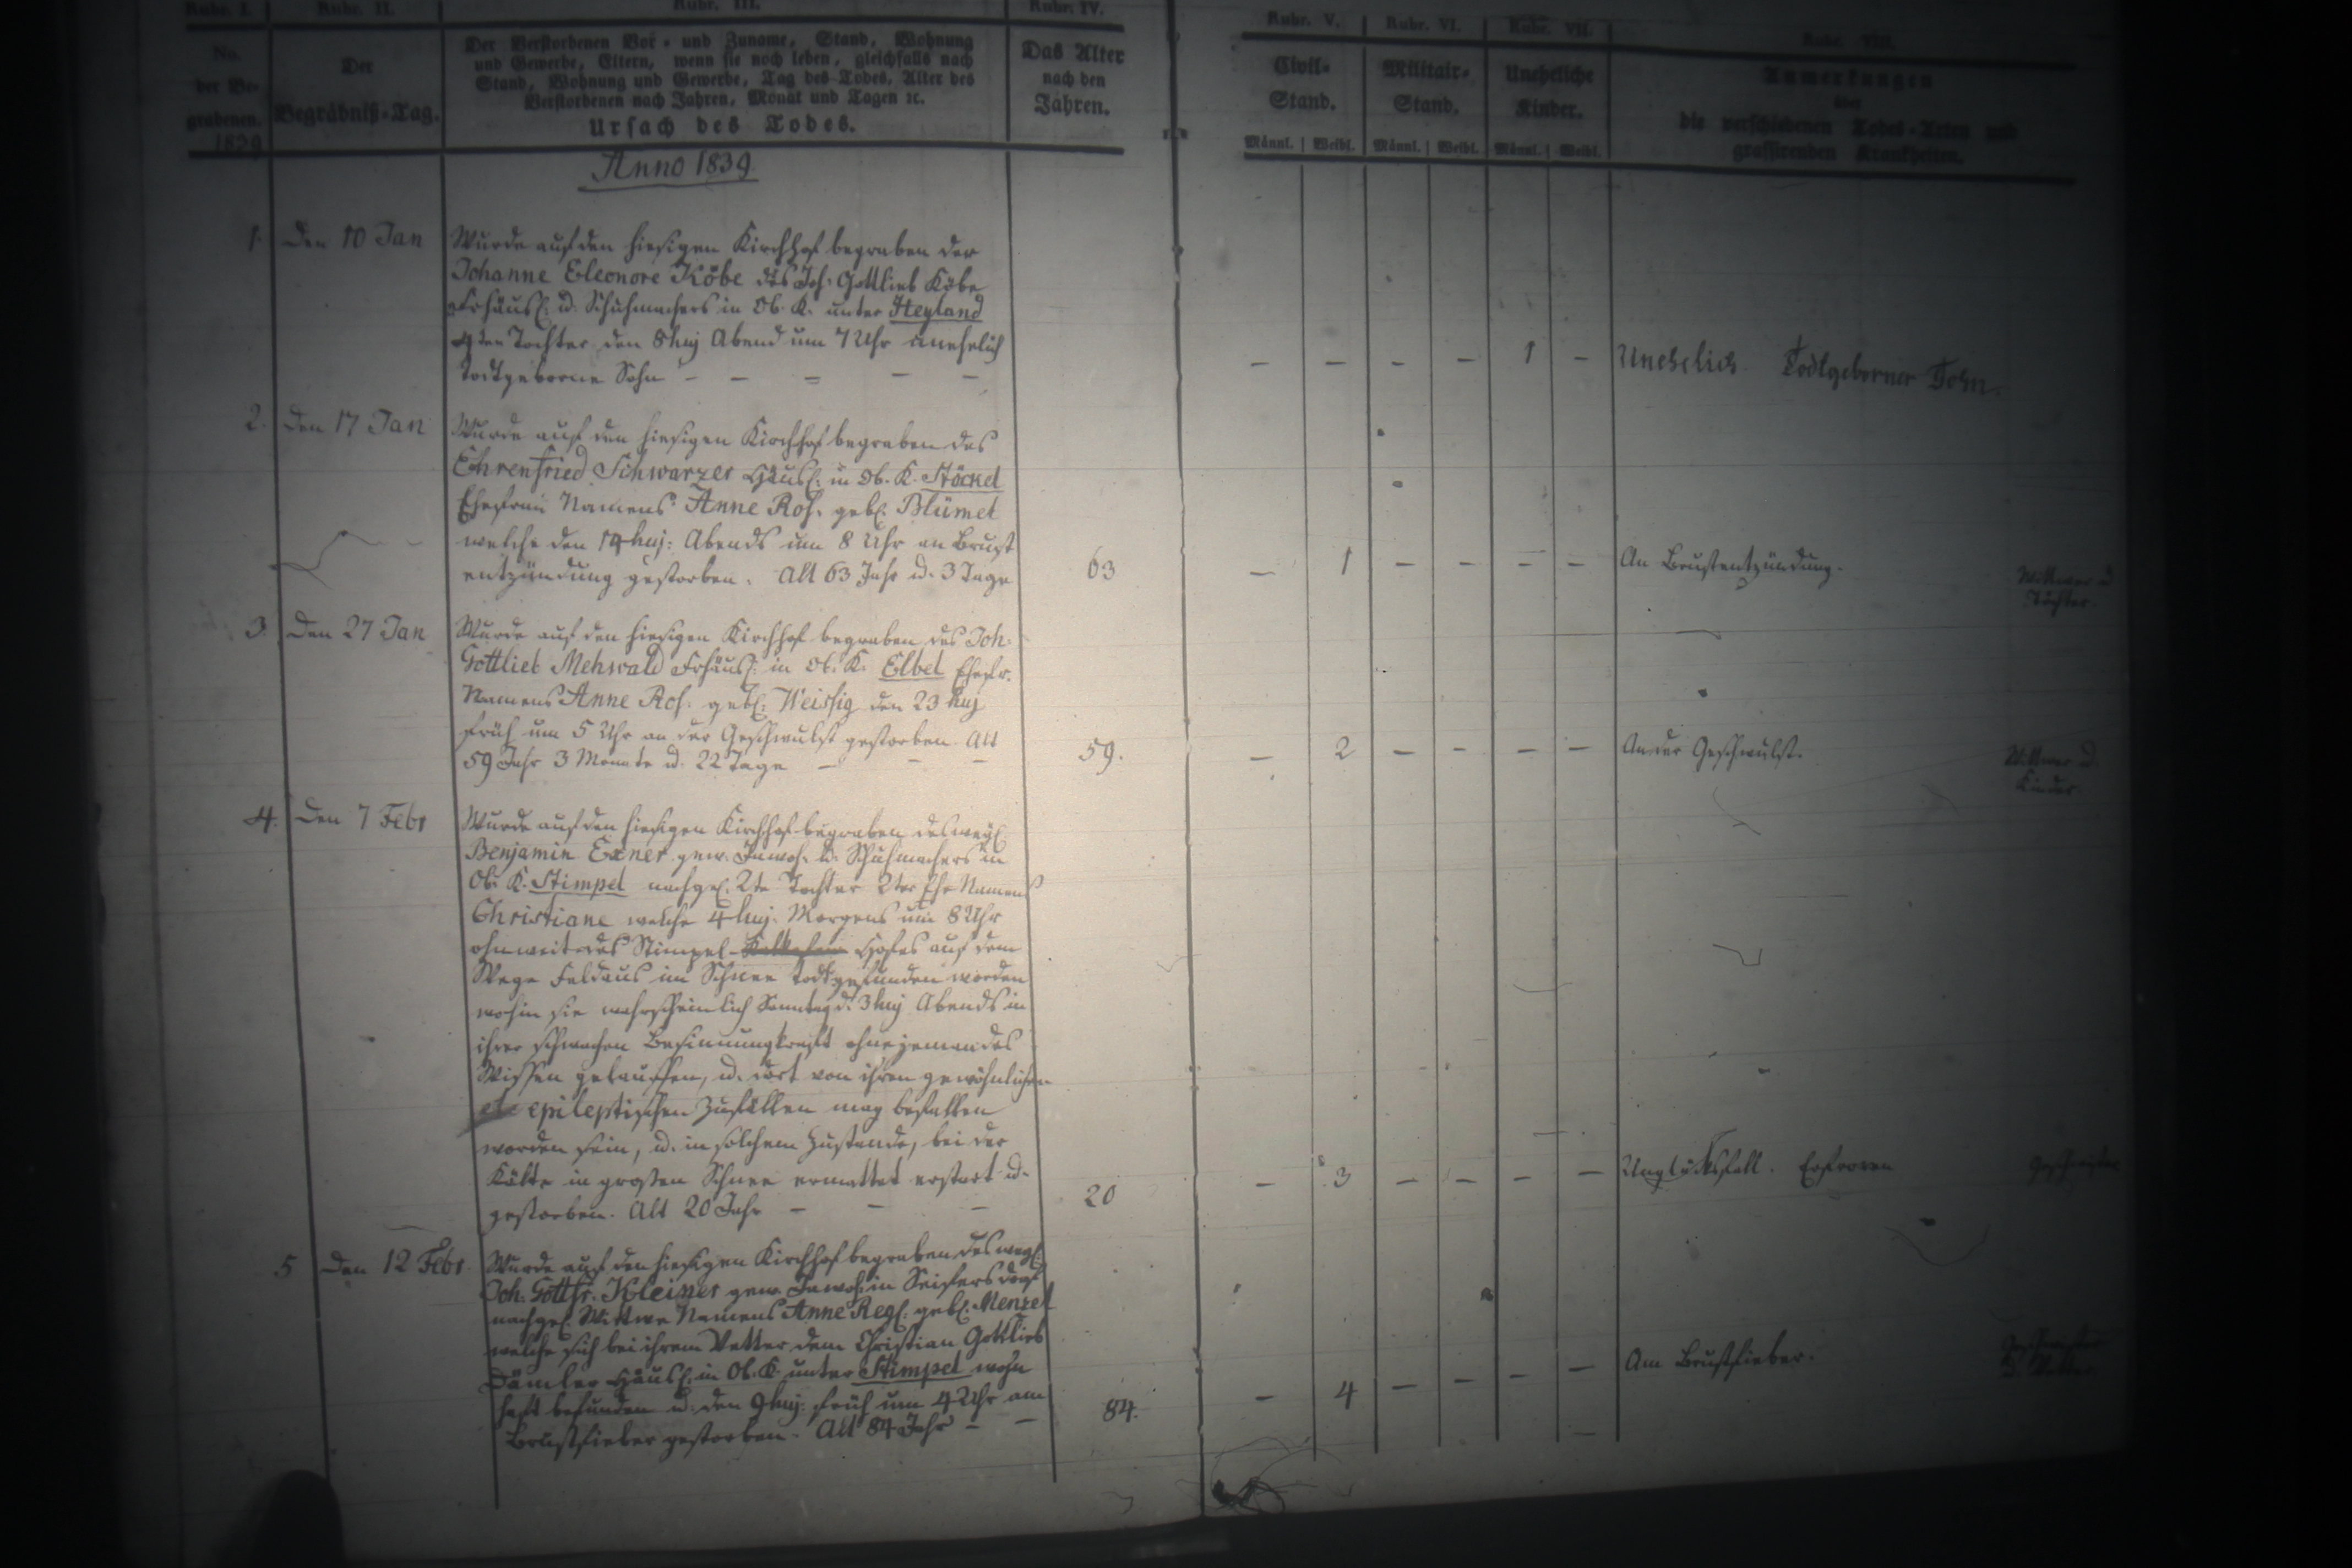 Rubr. I. Rubr. II. Rubr. III. Rubr. IV. Rubr. V. Rubr. VI. Rubr. VII. Rubr. VIII.
No.
der Be-
grabenen.
1839
Der
Begräbniß-Tag.
Der Verstorbenen Vor- und Zuname, Stand, Wohnung
und Gewerbe, Eltern, wenn sie noch leben, gleichfalls nach
Stand, Wohnung und Gewerbe, Tag des Todes, Alter des
Verstorbenen nach Jahren, Monat und Tagen ꝛc.
Ursach des Todes.
Das Alter
nach den
Jahren.
Civil-
Stand.
Männl. | Weibl.
Militair-
Stand.
Männl. | Weibl.
Uneheliche
Kinder.
Männl. | Weibl.
Anmerkungen
über
die verschiedenen Todes-Arten und
grassirenden Krankheiten.
Anno 1839
1. Den 10 Jan
Wurde auf den hiesigen Kirchhof begraben der
Johanne Eleonore Köbe des Joh. Gottlieb Köbe
Frhäusl. u. Schuhmachers in Ob. K. unter Heyland
4ten Tochter den 8 huj Abend um 7 Uhr unehelich
todtgeborne Sohn - - = - -
- - - - 1 - Unehelich Todtgeborner Sohn.
2. Den 17 Jan
Wurde auf den hiesigen Kirchhof begraben des
Ehrenfried Schwarzer Häusl: in Ob. K. Stöckel
Ehefrau Namens Anne Ros. gebl. Blümel
welche den 14 huj: Abends um 8 Uhr an Brust
entzündung gestorben. Alt 63 Jahr u. 3 Tage
63 - 1 - - - - An Brustentzündung.
Wittwer u
Töchter.
3. Den 27 Jan
Wurde auf den hiesigen Kirchhof begraben des Joh.
Gottlieb Mehwald Frhäusl: in Ob. K. Elbel Ehefr.
Namens Anne Ros. gebl: Weissig den 23 huj
früh um 5 Uhr an der Geschwulst gestorben. Alt
59 Jahr 3 Monate u. 22 Tage - - -
59. - 2 - - - - An der Geschwulst.
Wittwer u.
Kinder.
4. Den 7 Febr
Wurde auf den hiesigen Kirchhof begraben des weyl.
Benjamin Exner gew. Inwoh. u. Schuhmachers in
Ob. K. Stimpel nachgel. 2te Tochter 2ter Ehe Namens
Christiane welche 4 huj. Morgens um 8 Uhr
ohnweit des Stimpel- Hofes auf dem
Wege Feldaus im Schnee todtgefunden worden
wohin sie wahrscheinlich Sonntag d. 3 huj Abends in
ihrer schwachen Besinnungkraft ohne jemandes
Wissen gelauffen, u. dort von ihren gewöhnlichen
epileptischen Zufällen mag befallen
worden sein, u. in solchem Zustande, bei der
Kälte in großen Schnee ermattet erstart u.
gestorben. Alt 20 Jahr - - -
20 - 3 - - - - Unglücksfall. Erfroren
Geschwister
5 Den 12 Febr.
Wurde auf den hiesigen Kirchhof begraben des weyl.
Joh. Gottfr. Kleiner gew. Inwoh. in Seifersdorf
nachgel. Wittwe Namens Anne Regl. gebl. Menzel
welche sich bei ihrem Vetter dem Christian Gottlieb
Dämler Häusl: in Ob. K. unter Stimpel wohn
haft befunden u. den 9 huj. früh um 4 Uhr am
Brustfieber gestorben. Alt 84 Jahr - -
84. - 4 - - - - Am Brustfieber.